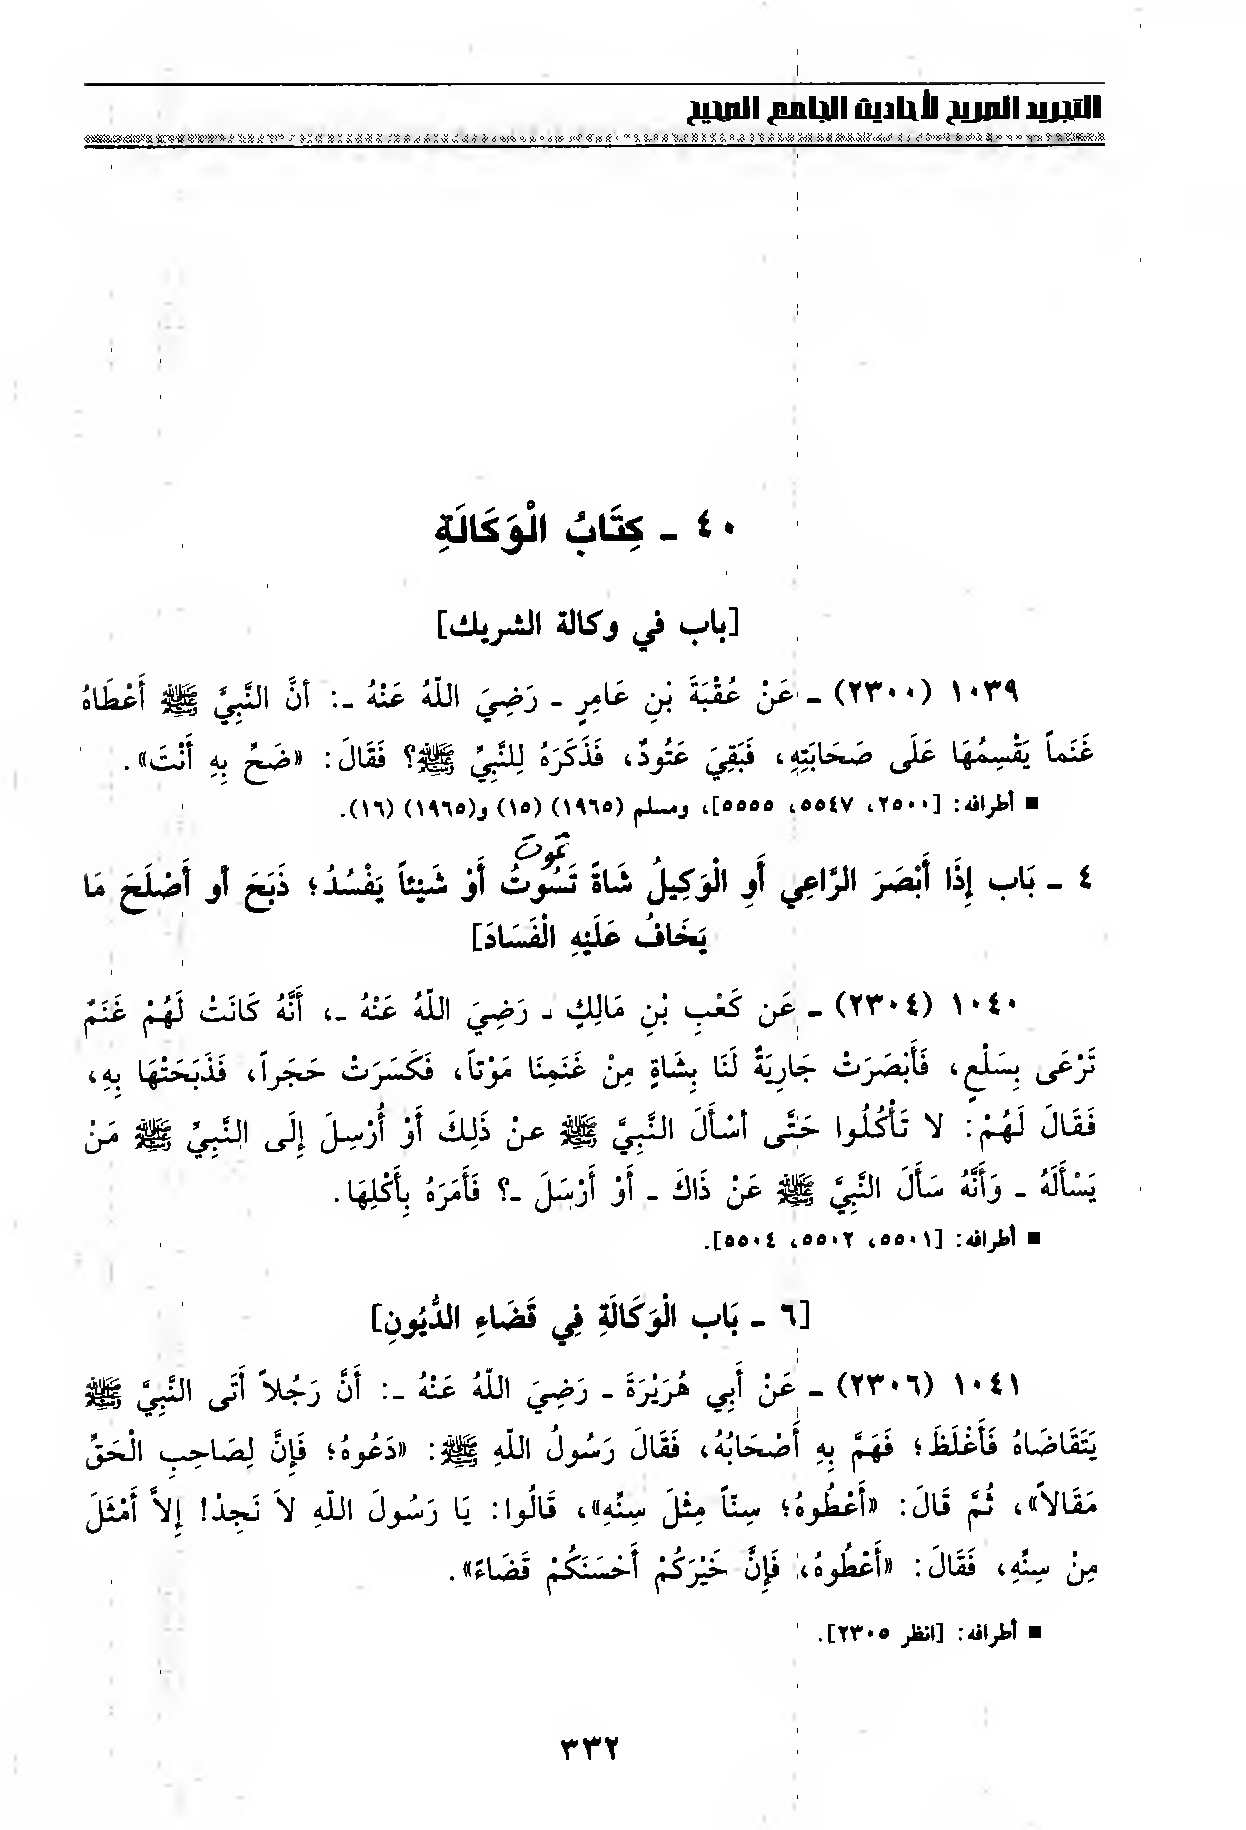 التجريد الصريح لأحاديث الجامع الصحيح
٤٠ ـ كِتَابُ الْوَكَالَةِ
[باب في وكالة الشريك]
١٠٣٩ (٢٣٠٠) ـ عَنْ عُقْبَةَ بْنِ عَامِرٍ ـ رَضِيَ اللّهُ عَنْهُ ـ: أنَّ النَّبِيَّ ﷺ أَعْطَاهُ
غَنَماً يَقْسِمُهَا عَلَى صَحَابَتِهِ، فَبَقِيَ عَتُودٌ، فَذَكَرَهُ لِلنَّبِيِّ ﷺ؟ فَقَالَ: «ضَحِّ بِهِ أَنْتَ».
■ أطرافه: [٢٥٠٠، ٥٥٤٧، ٥٥٥٥]، ومسلم (١٩٦٥) (١٥) و(١٩٦٥) (١٦).
تموت
٤ ـ بَاب إِذَا أَبْصَرَ الرَّاعِي أَوِ الْوَكِيلُ شَاةً تَسُوتُ أَوْ شَيْئاً يَفْسُدُ؛ ذَبَحَ أو أَصْلَحَ مَا
يَخَافُ عَلَيْهِ الْفَسَادَ]
١٠٤٠ (٢٣٠٤) ـ عَن كَعْبِ بْنِ مَالِكٍ ـ رَضِيَ اللّهُ عَنْهُ ـ، أَنَّهُ كَانَتْ لَهُمْ غَنَمٌ
تَرْعَى بِسَلْعٍ، فَأَبْصَرَتْ جَارِيَةٌ لَنَا بِشَاةٍ مِنْ غَنَمِنَا مَوْتاً، فَكَسَرَتْ حَجَراً، فَذَبَحَتْهَا بِهِ،
فَقَالَ لَهُمْ: لا تَأْكُلُوا حَتَّى أسْأَلَ النَّبِيَّ ﷺ عنْ ذَلِكَ أَوْ أُرْسِلَ إِلَى النَّبِيِّ ﷺ مَنْ
يَسْأَلُهُ ـ وَأَنَّهُ سَأَلَ النَّبِيَّ ﷺ عَنْ ذَاكَ ـ أَوْ أَرْسَلَ ـ؟ فَأَمَرَهُ بِأَكْلِهَا.
■ أطرافه: [٥٥٠١، ٥٥٠٢، ٥٥٠٤].
[٦ ـ بَاب الْوَكَالَةِ فِي قَضَاءِ الدُّيُونِ]
١٠٤١ (٢٣٠٦) ـ عَنْ أَبِي هُرَيْرَةَ ـ رَضِيَ اللّهُ عَنْهُ ـ: أَنَّ رَجُلاً أَتَى النَّبِيَّ ﷺ
يَتَقَاضَاهُ فَأَغْلَظَ؛ فَهَمَّ بِهِ أَصْحَابُهُ، فَقَالَ رَسُولُ اللّهِ ﷺ: «دَعُوهُ؛ فَإِنَّ لِصَاحِبِ الْحَقِّ
مَقَالاً»، ثُمَّ قَالَ: «أَعْطُوهُ؛ سِنّاً مِثْلَ سِنِّهِ»، قَالُوا: يَا رَسُولَ اللّهِ لاَ نَجِدْ! إِلاَّ أَمْثَلَ
مِنْ سِنِّهِ، فَقَالَ: «أَعْطُوهُ، فَإِنَّ خَيْرَكُمْ أَحْسَنَكُمْ قَضَاءً».
■ أطرافه: [انظر ٢٣٠٥].
٣٣٢